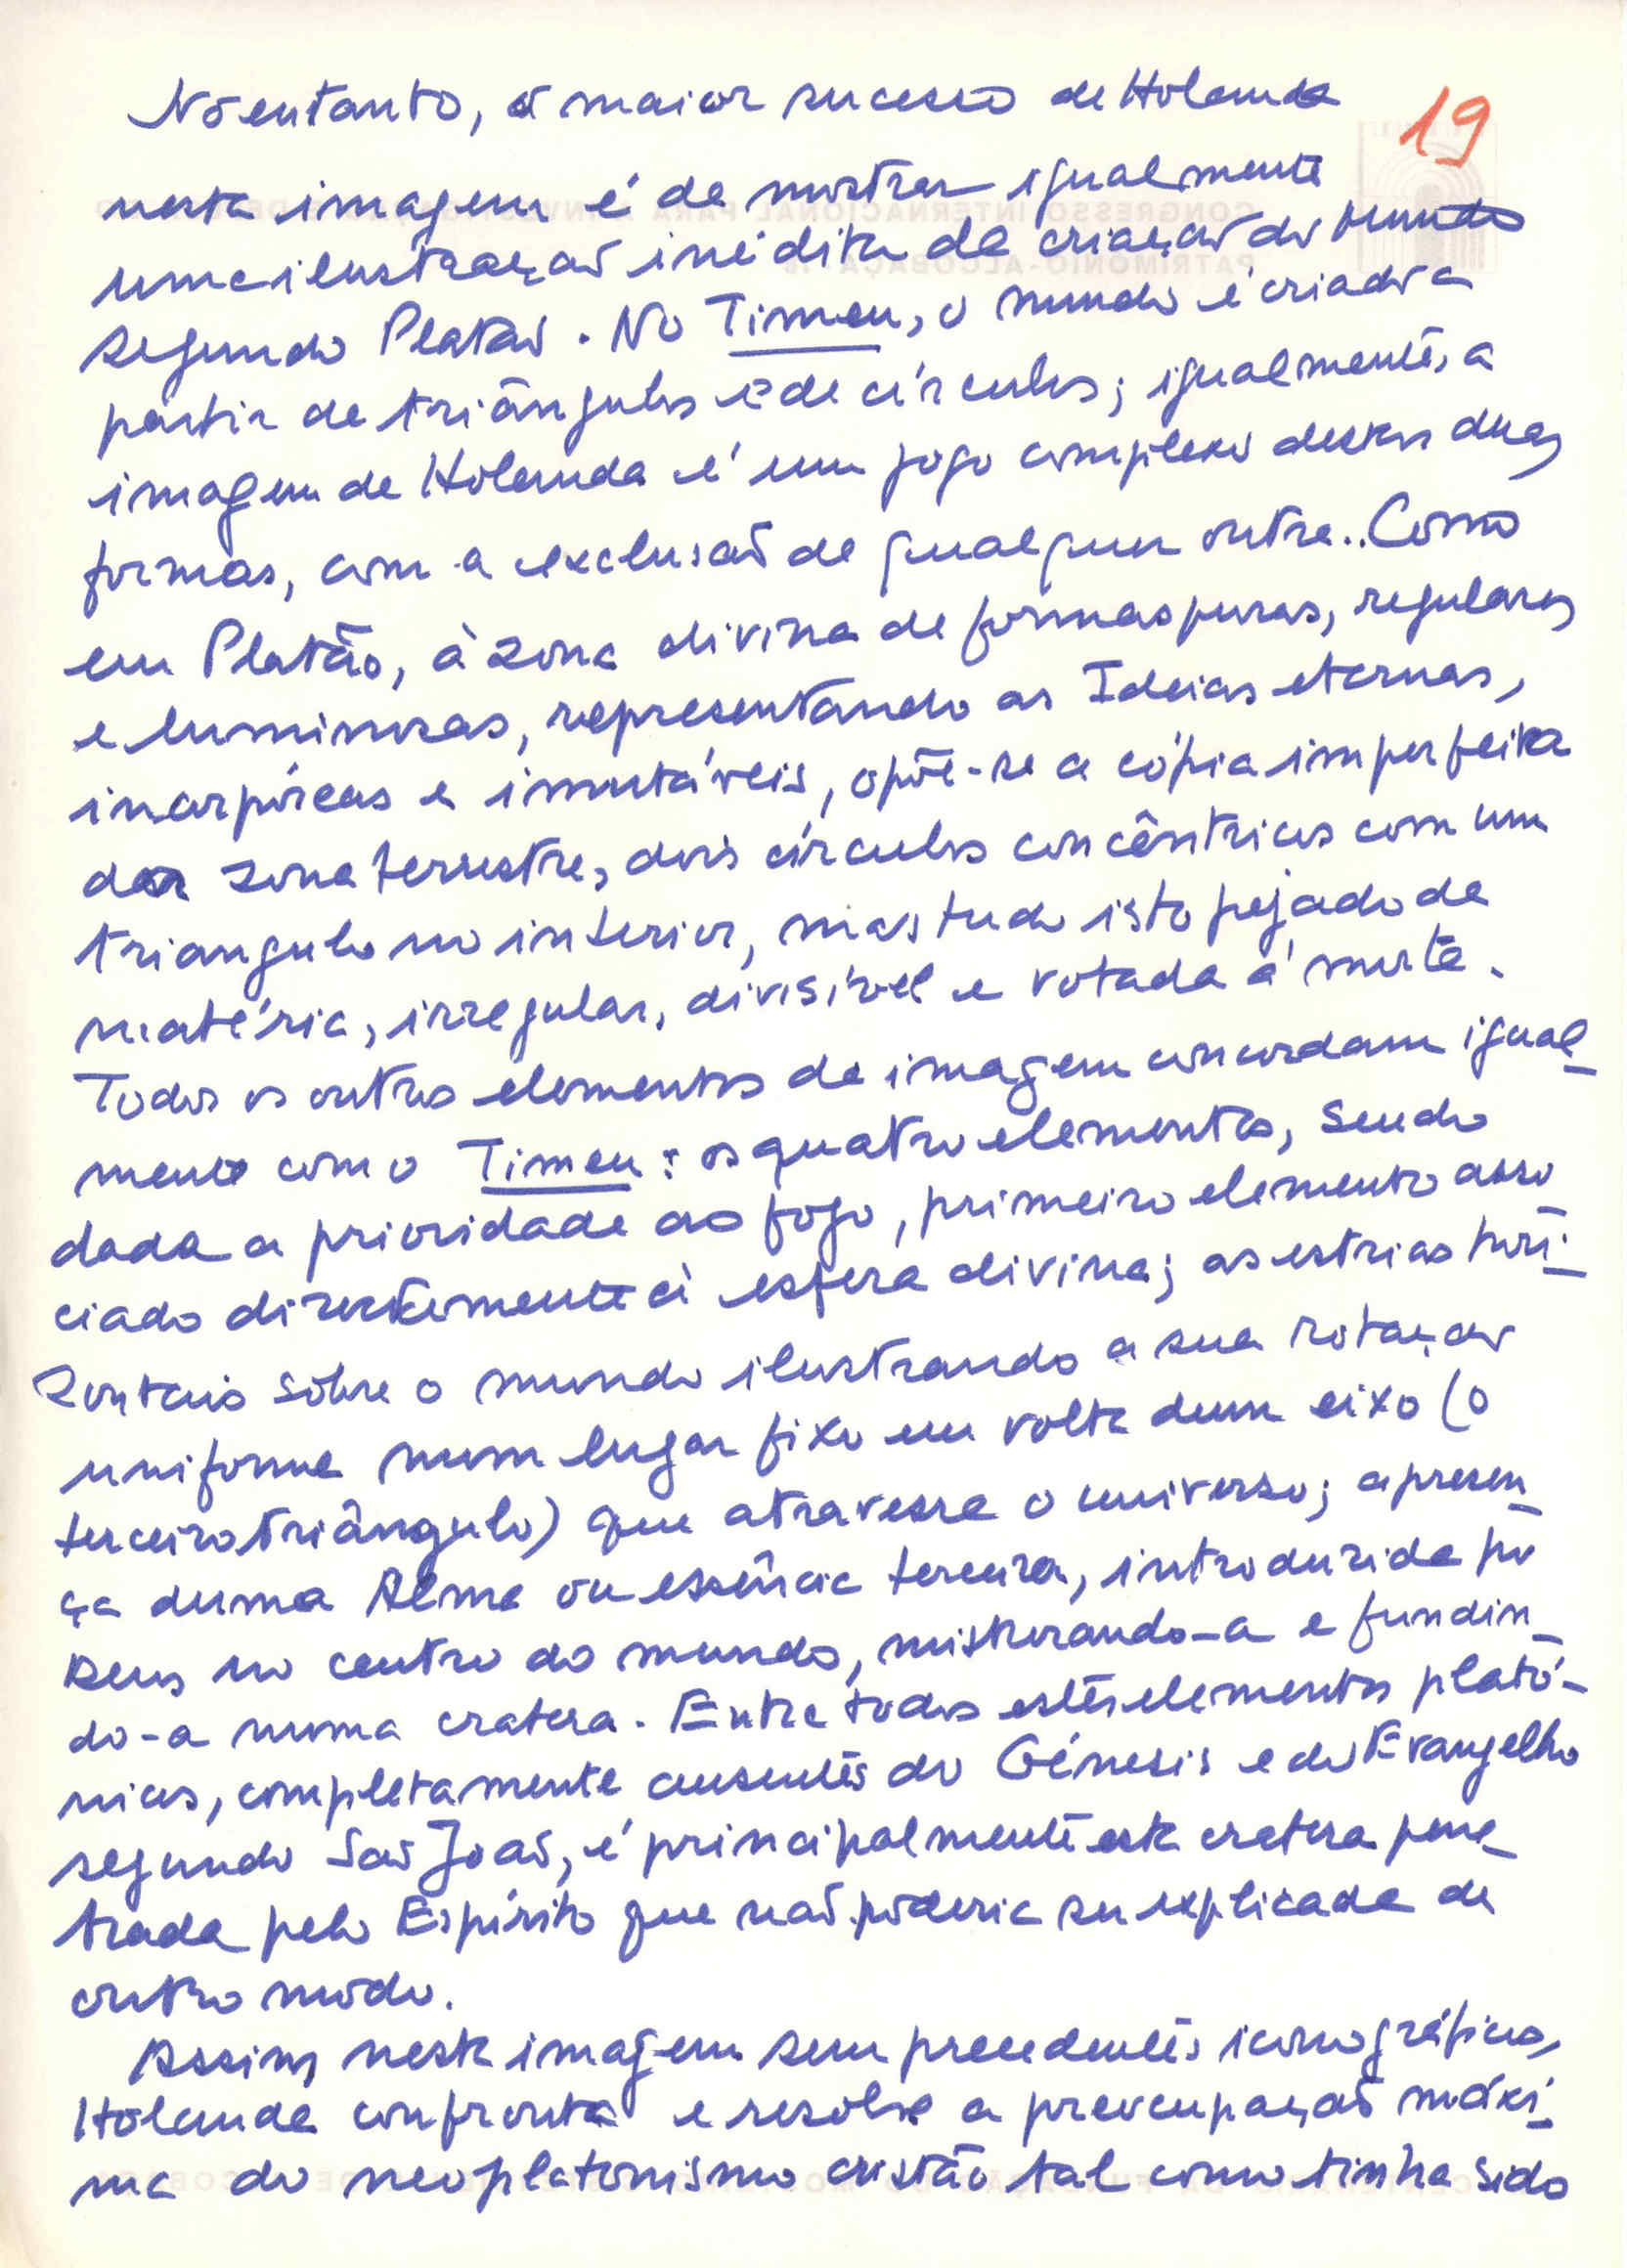 19
No entanto, o maior sucesso de Holanda
nesta imagem é de mostrar igualmente
uma ilustração inédita da criação do mundo
segundo Platão. No Timeu, o mundo é criado a
partir de triângulos e de círculos; igualmente, a
imagem de Holanda é um jogo complexo destas duas
formas, com a exclusão de qualquer outra.. Como
em Platão, à zona divina de formas puras, regulares
e luminosas, representando as Ideias eternas,
incorpóreas e imutáveis, opõe-se a cópia imperfeita
da zona terrestre, dois círculos concêntricos com um
triangulo no interior, mas tudo isto pejado de
matéria, irregular, divisível e votada à morte.
Todos os outros elementos da imagem concordam igual-
mente com o Timeu: os quatro elementos, sendo
dada a prioridade ao fogo, primeiro elemento asso
ciado directamente à esfera divina; as estrias hori-
zontais sobre o mundo ilustrando a sua rotação
uniforme num lugar fixo em volta dum eixo (o
terceiro triângulo) que atravessa o universo; a presen-
ça duma Alma ou essência terceira, introduzida por
Deus no centro do mundo, misturando-a e fundin-
do-a numa cratera. Entre todos estes elementos plató-
nicos, completamente ausentes do Génesis e do Evangelho
segundo São João, é principalmente esta cratera pene-
trada pelo Espírito que não poderia ser explicada de
outro modo.
Assim, nesta imagem sem precedentes iconográficos,
Holanda confronta e resolve a preocupação máxi-
ma do neoplatonismo cristão tal como tinha sido